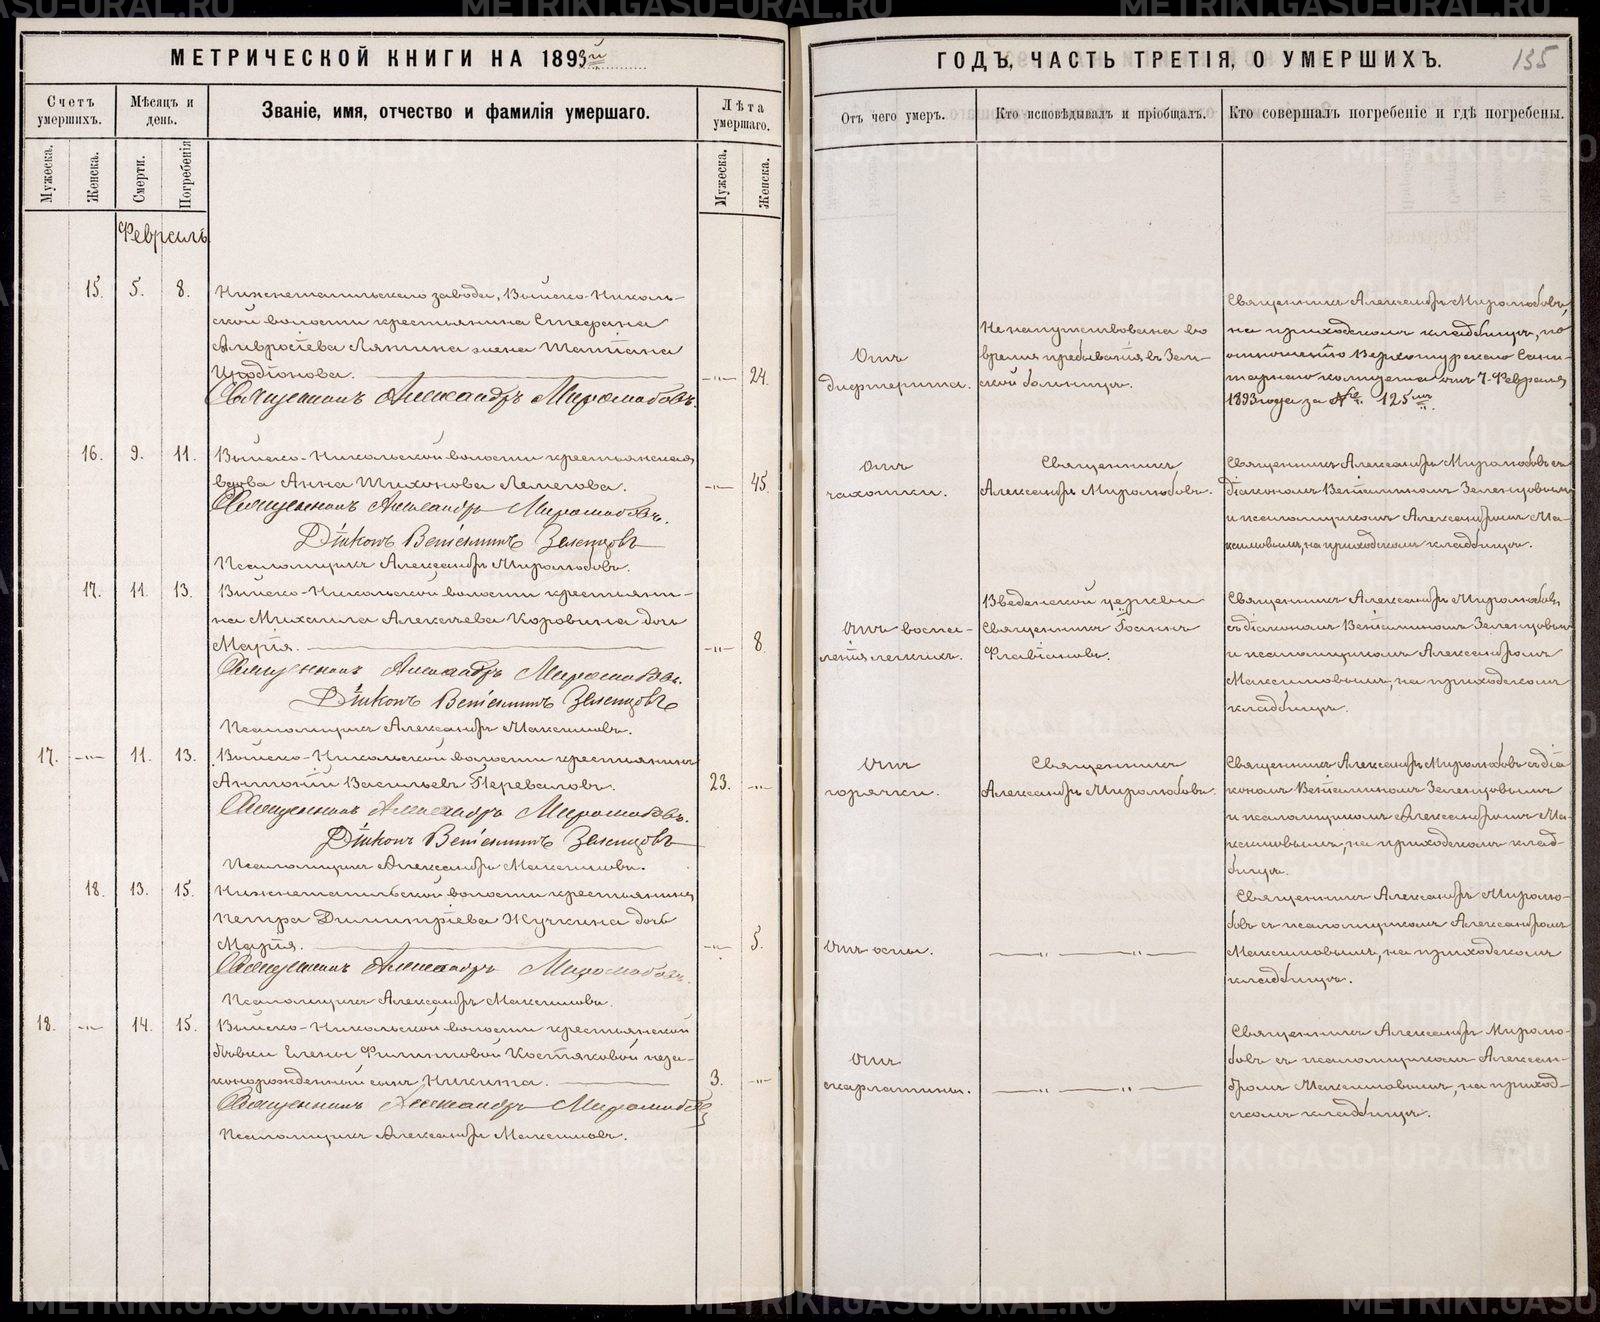 МЕТРИЧЕСКОЙ КНИГИ НА 1893й
Счетъ умершихъ.
Мѣсяцъ и день.
Званіе, имя, отчество и фамилія умершаго.
Лѣта умершаго.
Мужеска.
Женска.
Смерти.
Погребенія
Мужеска.
Женска.
Февраль
15. 5. 8.
Нижнетагильскаго завода, Выйско-Николь-
ской волости крестьянина Стефана
Амвросіева Ляпина жена Татіана
Иродіонова.
—„— 24.
Священникъ Александръ Миролюбовъ.
16. 9. 11.
Выйско-Никольской волости крестьянская
вдова Анна Тихонова
—„— 45
Священникъ Александръ Миролюбовъ.
Діаконъ Веніаминъ Зеленцовъ
Псаломщикъ Александръ Миролюбовъ.
17. 11. 13.
Выйско-Никольской волости крестьяни-
на Михаила Алексѣева Коровина дочь
Марія.
—„— 8.
Священникъ Александръ Миролюбовъ.
Діаконъ Веніаминъ Зеленцовъ
Псаломщикъ Александръ Максимовъ.
17. —„— 11. 13.
Выйско-Никольской волости крестьянинъ
Антоній Васильевъ Переваловъ.
23. —„—
Священникъ Александръ Миролюбовъ.
Діаконъ Веніаминъ Зеленцовъ
Псаломщикъ Александръ Максимовъ.
18. 13. 15.
Нижнетагильской волости крестьянина
Петра Димитріева Жучкина дочь
Марія.
—„— 5.
Священникъ Александръ Миролюбовъ.
Псаломщикъ Александръ Максимовъ.
18. —„— 14. 15.
Выйско-Никольской волости крестьянской
дѣвки Елены Филипповой Костяковой неза-
коннорожденный сынъ Никита.
3. —„—
Священникъ Александръ Миролюбовъ
Псаломщикъ Александръ Максимовъ.
ГОДЪ, ЧАСТЬ ТРЕТІЯ, О УМЕРШИХЪ.
135
Отъ чего умеръ.
Кто исповѣдывалъ и пріобщалъ.
Кто совершалъ погребеніе и гдѣ погребены.
Отъ
дифтерита.
Не напутствована во
время пребыванія въ Зем-
ской больницѣ.
Священникъ Александръ Миролюбовъ,
на приходскомъ кладбищѣ, по
отношенію Верхотурскаго Сани-
тарнаго комитета отъ 7 Февраля
1893 года за № 125мъ.
Отъ
чахотки.
Священникъ
Александръ Миролюбовъ.
Священникъ Александръ Миролюбовъ съ
діакономъ Веніаминомъ Зеленцовымъ
и псаломщикомъ Александромъ Ма-
ксимовымъ, на приходскомъ кладбищѣ.
Отъ воспа-
ленія легкихъ.
Введенской церкви
Священникъ Іоаннъ
Флавіановъ.
Священникъ Александръ Миролюбовъ
съ діакономъ Веніаминомъ Зеленцовымъ
и псаломщикомъ Александромъ
Максимовымъ, на приходскомъ
кладбищѣ.
Отъ
горячки.
Священникъ
Александръ Миролюбовъ.
Священникъ Александръ Миролюбовъ съ діа
кономъ Веніаминомъ Зеленцовымъ
и псаломщикомъ Александромъ Ма-
ксимовымъ, на приходскомъ клад-
бищѣ.
Отъ оспы.
—„— —„—
Священникъ Александръ Миролю-
бовъ съ псаломщикомъ Александромъ
Максимовымъ, на приходскомъ
кладбищѣ.
Отъ
скарлатины.
—„— —„—
Священникъ Александръ Миролю-
бовъ съ псаломщикомъ Алексан-
дромъ Максимовымъ, на приход-
скомъ кладбищѣ.
METRIKI.GASO-URAL.RU